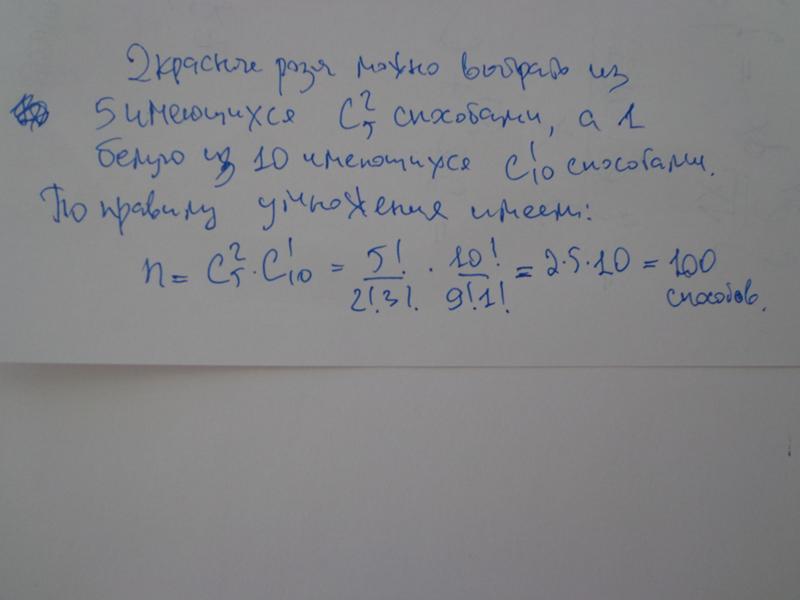 2 красные розы можно выбрать из
5 имеющихся C₅² способами, а 1
белую из 10 имеющихся C₁₀¹ способами.
По правилу умножения имеем:
n = C₅² · C₁₀¹ = 5!/(2!3!) · 10!/(9!1!) = 2·5·10 = 100
способов.